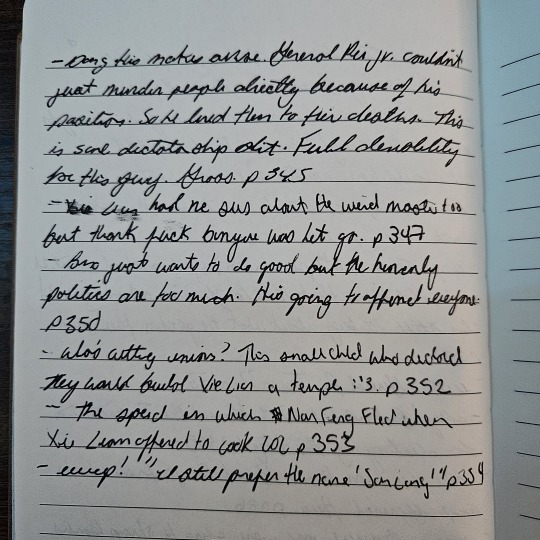 - Dang this makes sense. General Pei Jr. couldn't
just murder people directly because of his
position. So he lured them to their deaths. This
is some dictatorship shit. Full demolity
for this guy. Gross. p 345
- had me sus about the weird master too
but thank fuck banyue was let go. p 347
- Bro just wants to do good but the heavenly
politics are too much. He's going to offend everyone.
p350
- who's cutting onions? This small child who declared
they would build Xie Lian a temple :'3. p 352
- The speed in which Nan Feng Fled when
Xie Lian offered to cook LOL p 353
- eeeep! "I'd still prefer the name 'San Lang'!" p354